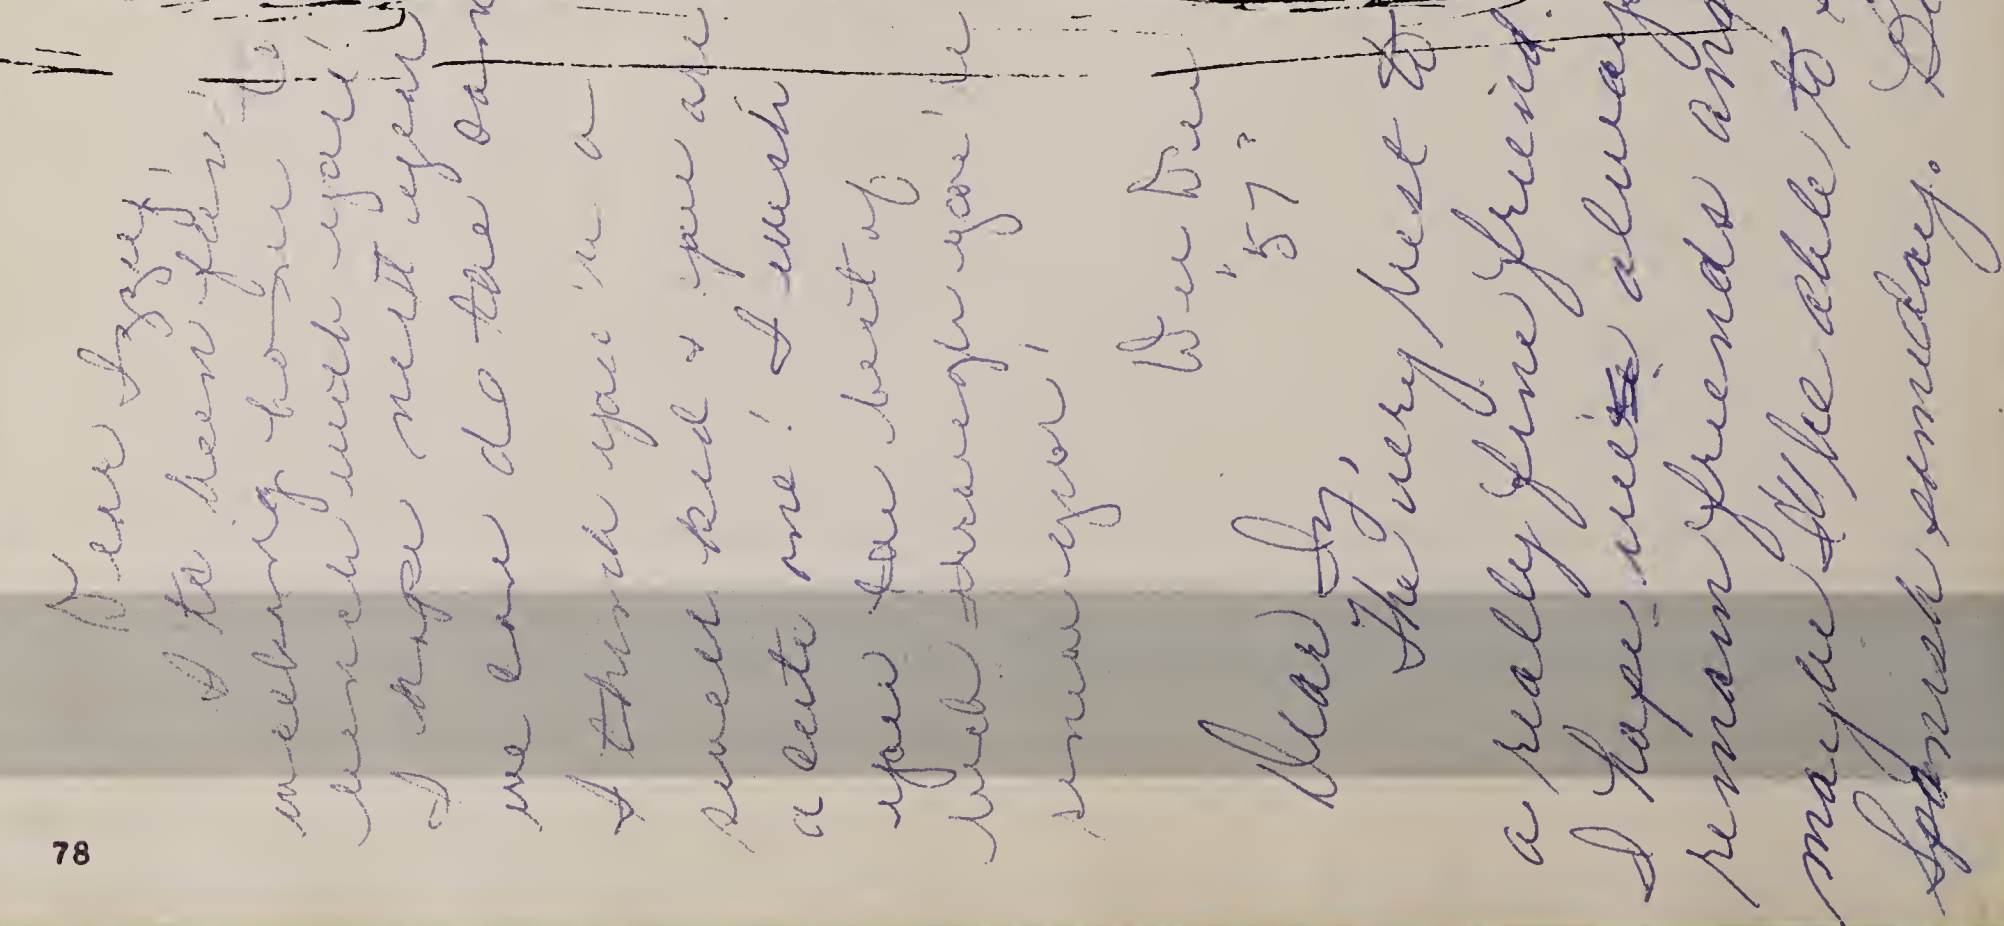 Dear Izzy,
It's been fun
working
lunch with you!
I hope next year
we can do the sam
I think you're a
sweet kid & you are
a cute one! I wish
you the best of
luck through you're se
senior year,
Dee Dee
"57"
Dear Izy,
The very best to
a really fine friend.
I hope we always
remain friends and
maybe I'll be able to
Spanish someday.
78